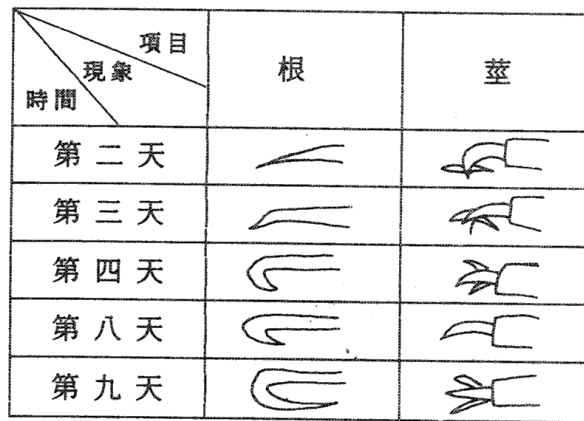 項目
現象
時間
根
莖
第二天
第三天
第四天
第八天
第九天